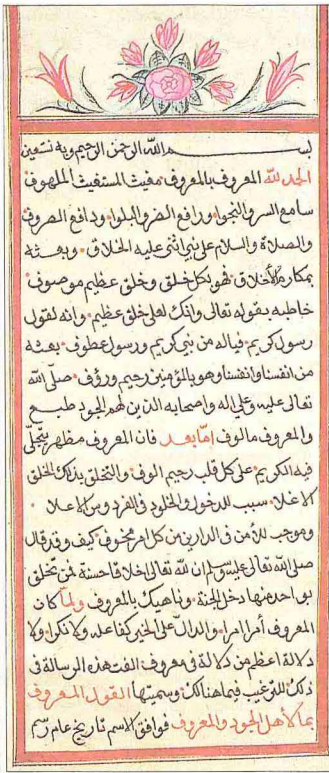 بسم الله الرحمن الرحيم وبه نستعين
الحمد لله المعروف بالمعروف مغيث المستغيث الملهوف
سامع السر والنجوا ورافع الضر والبلوا ودافع الصروف
والصلاة والسلام على نبي اثنى عليه الخلاق وبعثه
بمكارم الأخلاق فهو بكل خلق وخلق عظيم موصوف
خاطبه بقوله تعالى وانك لعلى خلق عظيم وانه لقول
رسول كريم فياله من نبي كريم ورسول عطوف بعثه
من انفسنا وانفسنا وهو بالمؤمنين رحيم ورؤف صلى الله
تعالى عليه وعلى اله واصحابه الذين لهم الجود طبع
والمعروف مالوف اما بعد فان المعروف مظهر يتجلى
فيه الكريم على كل قلب رحيم الوف والتخلق بذلك الخلق
الاغلا سبب للدخول والخلود في الفردوس الاعلا
وموجب للأمن في الدارين من كل امر مخوف كيف وقد قال
صلى الله تعالى عليه وسلم ان لله تعالى اخلاقا حسنة فمن تخلق
بواحد منها دخل الجنة وناهيك بالمعروف ولما كان
المعروف أمرا امرا والدال على الخير كفاعله ولا نكرا ولا
دلالة اعظم من دلالة في معروف الفت هذه الرسالة في
ذلك للترغيب فيما هنالك وسميتها القول المعروف
بما لأهل الجود والمعروف فوافق الاسم تاريخ عام رسم